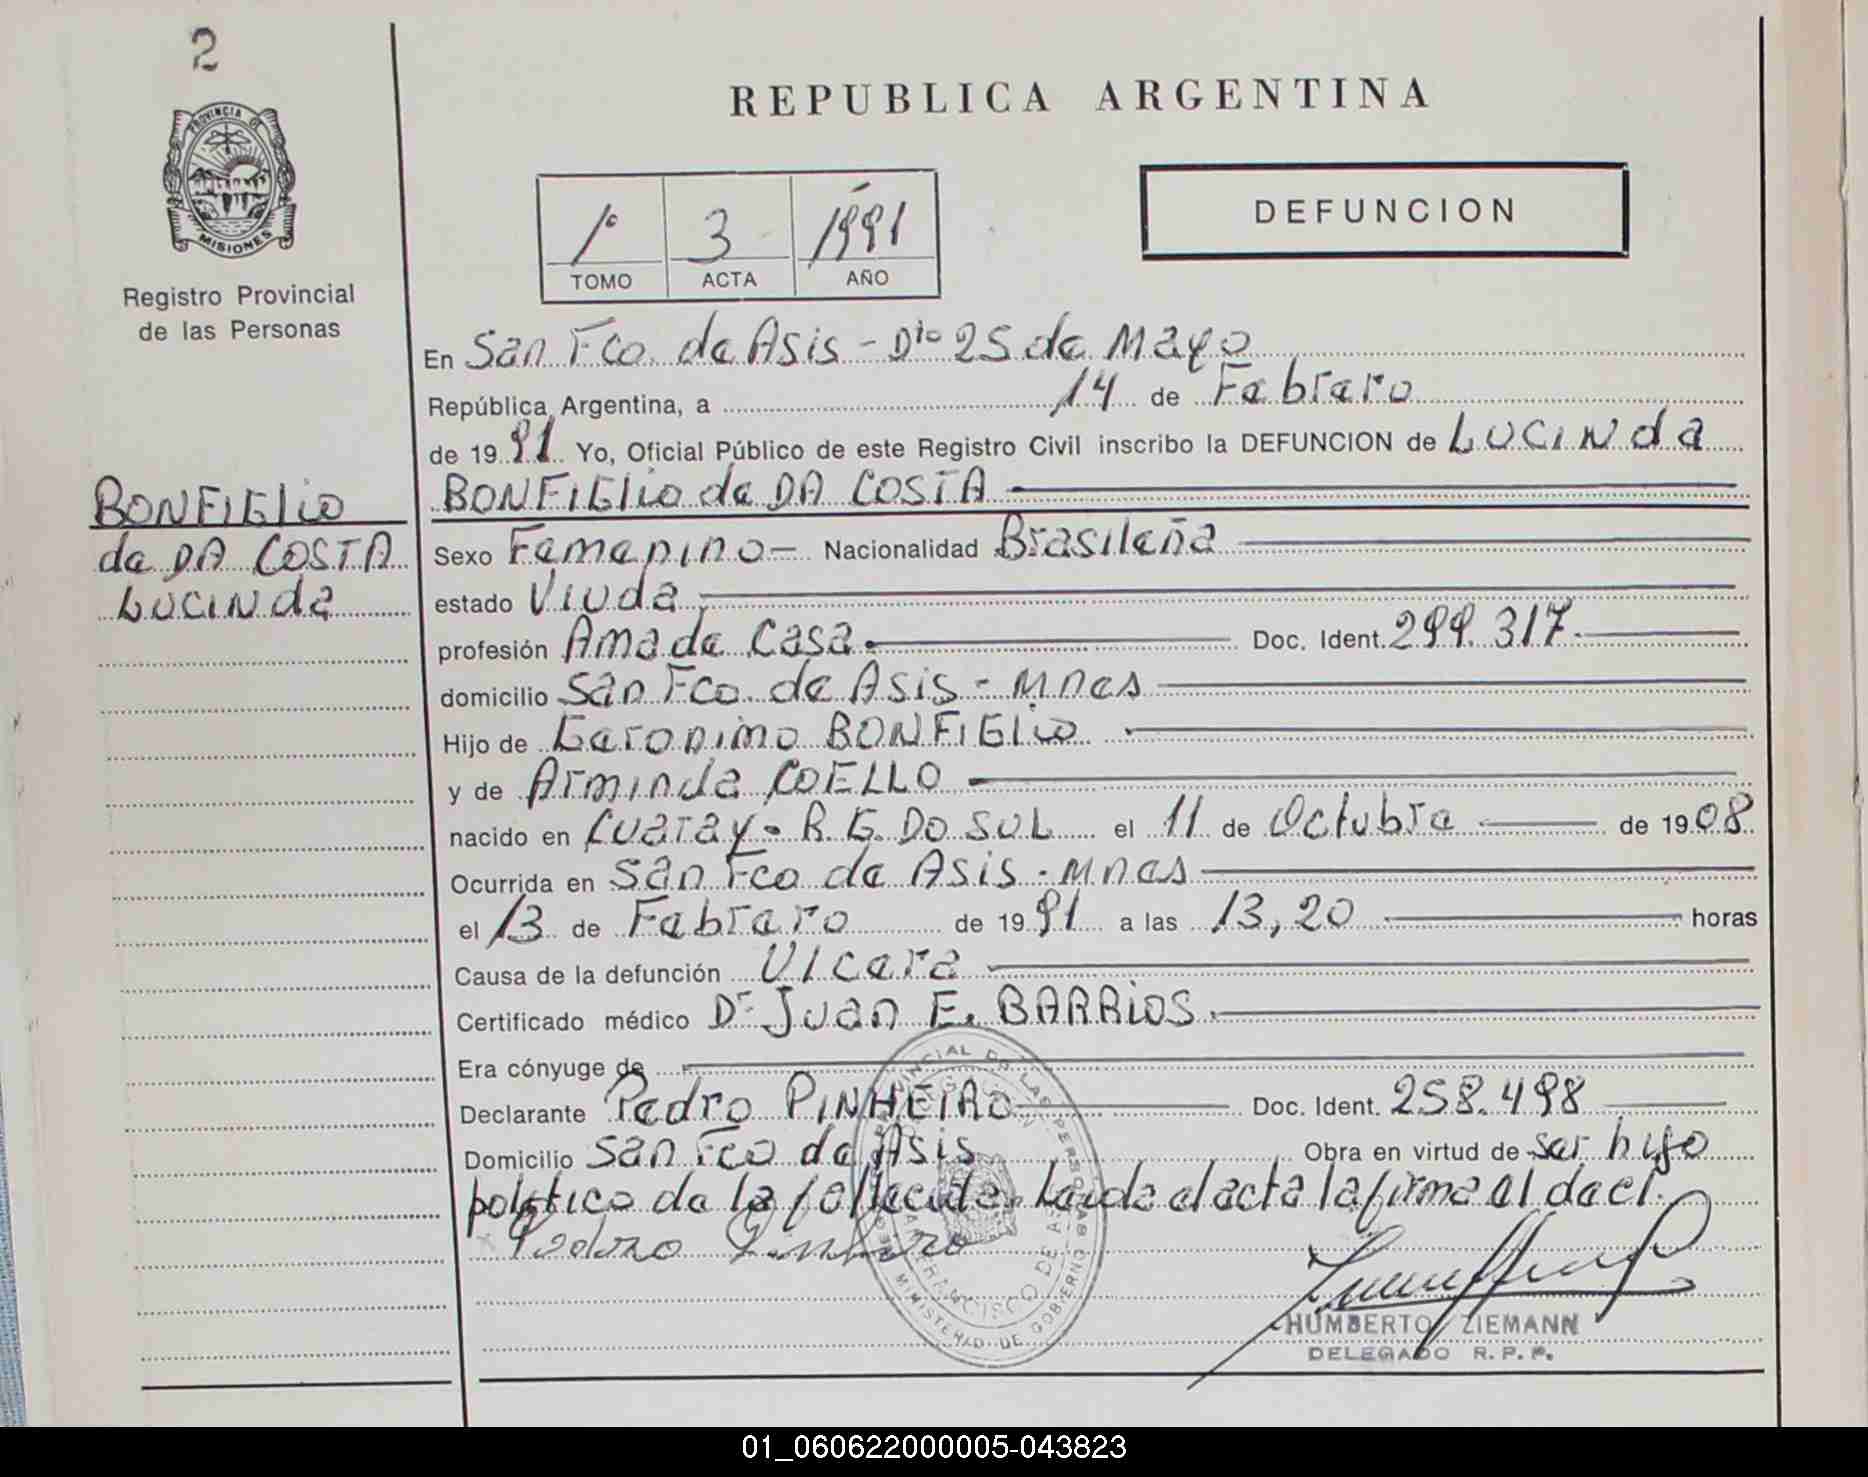 2
PROVINCIA DE
MISIONES
Registro Provincial
de las Personas
BONFIGLIO
de DA COSTA
LUCINda
REPUBLICA ARGENTINA
1º 3 1991
TOMO ACTA AÑO
DEFUNCION
En San Fco. de Asis - Dto 25 de Mayo
República Argentina, a 14 de Febrero
de 1991 Yo, Oficial Público de este Registro Civil inscribo la DEFUNCION de LUCINda
BONFIGLIO de DA COSTA
Sexo Femenino - Nacionalidad Brasileña
estado Viuda
profesión Ama de Casa. Doc. Ident. 299.317.
domicilio San Fco. de Asis - Mnes
Hijo de Geronimo BONFIGLIO
y de Arminda COELLO
nacido en Cuaray - R.G. DO SUL el 11 de Octubre de 1908
Ocurrida en San Fco de Asis - Mnes
el 13 de Febrero de 1991 a las 13,20 horas
Causa de la defunción Ulcera
Certificado médico Dr Juan E. BARRIOS.
Era cónyuge de
Declarante Pedro PINHEIRO Doc. Ident. 258.498
Domicilio San Fco de Asis Obra en virtud de ser hijo
politico de la fallecida. Leida el acta la firma al de el.
HUMBERTO ZIEMANN
DELEGADO R.P.P.
MINISTERIO DE GOBIERNO
FRANCISCO DE A
01_060622000005-043823